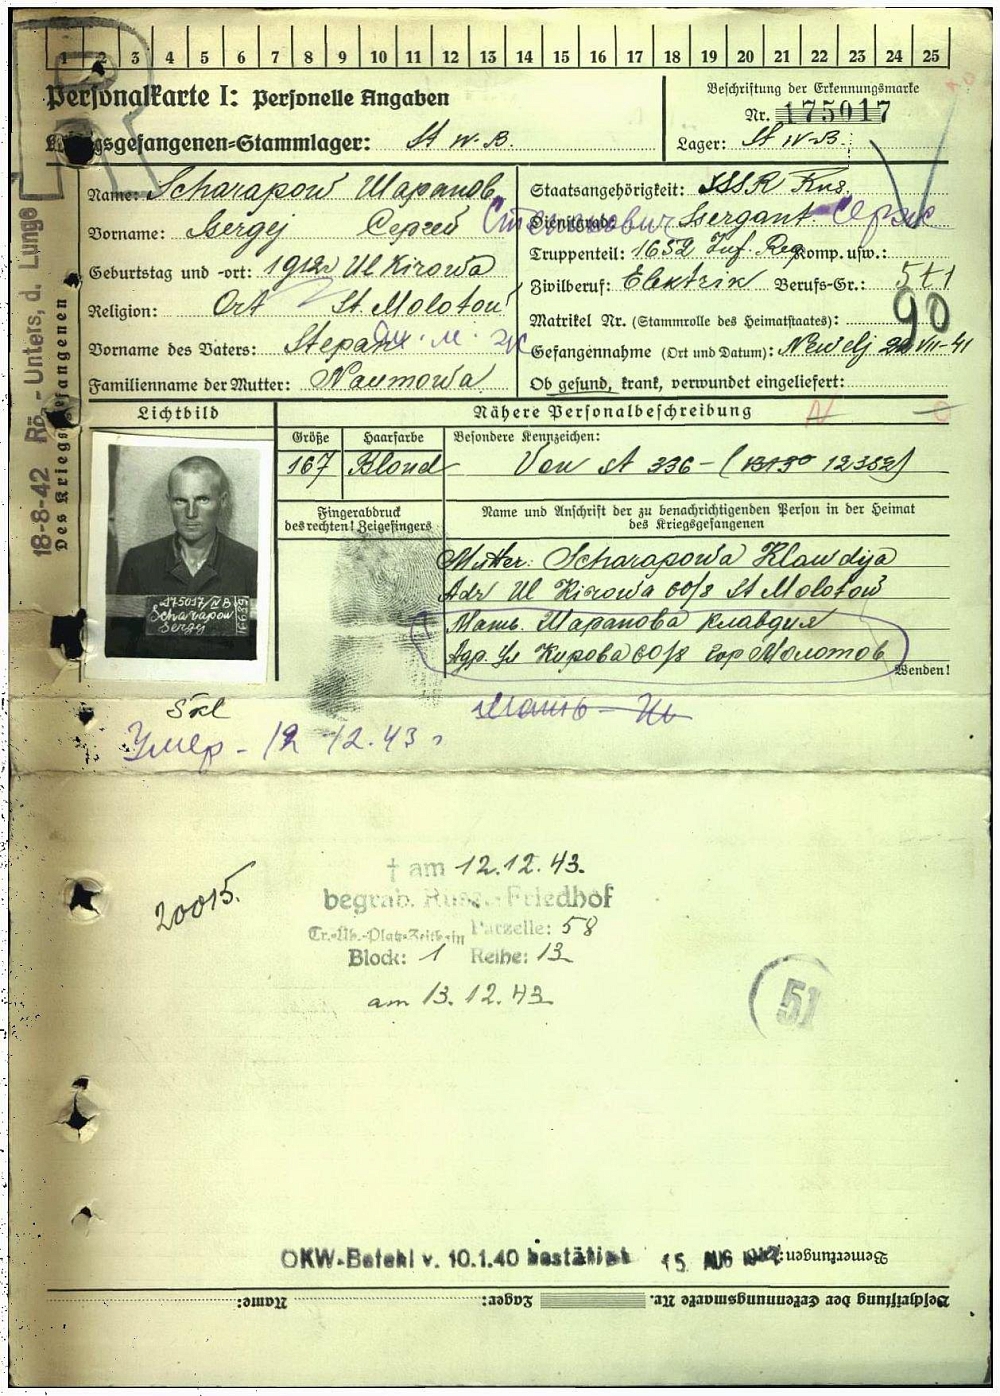 1 2 3 4 5 6 7 8 9 10 11 12 13 14 15 16 17 18 19 20 21 22 23 24 25
Personalkarte I: Personelle Angaben
Beschriftung der Erkennungsmarke
Nr. 175017
Kriegsgefangenen-Stammlager: St IV. B.
Lager: St IV-B.
Name: Scharapow Шарапов
Staatsangehörigkeit: SSSR Rus.
Vorname: Sergej Сергей Степанович
Dienstgrad: Sergant Серж
Geburtstag und -ort: 1912 Ul Kirowa
Truppenteil: 1652 Inf. Reg Komp. usw.:
Zivilberuf: Elektrik Berufs-Gr.: 5t1
Religion: Ort St. Molotow
Matrikel Nr. (Stammrolle des Heimatstaates): 90
Vorname des Vaters: Stepan
Gefangennahme (Ort und Datum): Newelj VII-41
Familienname der Mutter: Naumowa
Ob gesund, krank, verwundet eingeliefert:
Lichtbild
Nähere Personalbeschreibung
Größe Haarfarbe Besondere Kennzeichen:
167 Blond Von St 336-
Fingerabdruck
des rechten! Zeigefingers
Name und Anschrift der zu benachrichtigenden Person in der Heimat
des Kriegsgefangenen
Mutter: Scharapowa Klawdija
Adr Ul Kirowa 60/8 St Molotow
Мать. Шарапова Клавдия
Адр. Ул Кирова 60/8 Гор Молотов
Wenden!
175017/IV B
Scharapow
Sergej
18-8-42 Rö.-Unters. d. Lunge
Des Kriegsgefangenen
Умер - 12 12.43 г
20015.
† am 12.12.43.
begrab. Russ.-Friedhof
Tr.-Üb.-Platz-Zeithain Parzelle: 58
Block: 1 Reihe: 13
am 13.12.43
51
OKW-Befehl v. 10.1.40 bestätigt 15. AUG 1942
Bemerkungen:
Beschriftung der Erkennungsmarke Nr. Lager: Name: